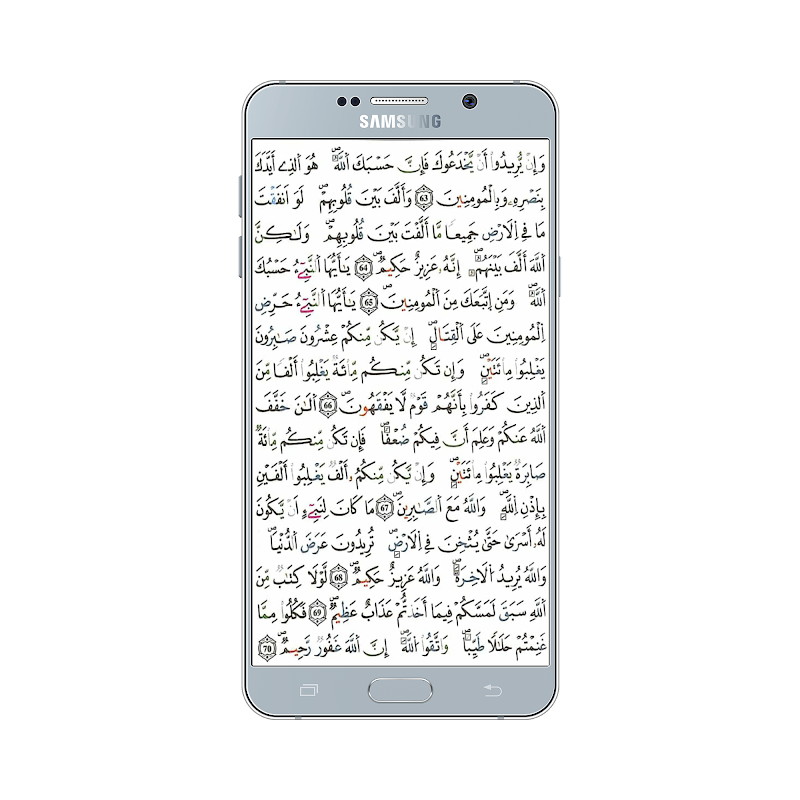 SAMSUNG
وَإِنْ يُّرِيدُوٓاْ أَنْ يَّخْدَعُوكَ فَإِنَّ حَسْبَكَ اَ۬للَّهُۖ هُوَ اَ۬لذِےٓ أَيَّدَكَ
بِنَصْرِهِۦ وَبِالْمُومِنِينَ 63 وَأَلَّفَ بَيْنَ قُلُوبِهِمْۖ لَوَ اَنفَقْتَ
مَا فِے اِ۬لَارْضِ جَمِيعاٗ مَّآ أَلَّفْتَ بَيْنَ قُلُوبِهِمْۖ وَلَٰكِنَّ
اَ۬للَّهَ أَلَّفَ بَيْنَهُمُۥٓۖ إِنَّهُۥ عَزِيزٌ حَكِيمٞۖ 64 يَٰٓأَيُّهَا اَ۬لنَّبِےٓءُ حَسْبُكَ
اَ۬للَّهُۖ وَمَنِ اِ۪تَّبَعَكَ مِنَ اَ۬لْمُومِنِينَۖ 65 يَٰٓأَيُّهَا اَ۬لنَّبِےٓءُ حَرِّضِ
اِ۬لْمُومِنِينَ عَلَى اَ۬لْقِتَالِۖ إِنْ يَّكُن مِّنكُمْ عِشْرُونَ صَٰبِرُونَ
يَغْلِبُواْ مِاْئَتَيْنِۖ وَإِن تَكُن مِّنكُم مِّاْئَةٞ يَغْلِبُوٓاْ أَلْفاٗ مِّنَ
اَ۬لذِينَ كَفَرُواْ بِأَنَّهُمْ قَوْمٞ لَّا يَفْقَهُونَۖ 66 اَ۬لَٰنَ خَفَّفَ
اَ۬للَّهُ عَنكُمْ وَعَلِمَ أَنَّ فِيكُمْ ضُعْفاٗۖ فَإِن تَكُن مِّنكُم مِّاْئَةٞ
صَابِرَةٞ يَغْلِبُواْ مِاْئَتَيْنِۖ وَإِنْ يَّكُن مِّنكُمُۥٓ أَلْفٞ يَغْلِبُوٓاْ أَلْفَيْنِ
بِإِذْنِ اِ۬للَّهِۖ وَاللَّهُ مَعَ اَ۬لصَّٰبِرِينَۖ 67 مَا كَانَ لِنَبِےٓءٍ اَنْ يَّكُونَ
لَهُۥٓ أَسْرَىٰ حَتَّىٰ يُثْخِنَ فِے اِ۬لَارْضِۖ تُرِيدُونَ عَرَضَ اَ۬لدُّنْيَاۖ
وَاللَّهُ يُرِيدُ اُ۬لَاخِرَةَۖ وَاللَّهُ عَزِيزٌ حَكِيمٞۖ 68 لَّوْلَا كِتَٰبٞ مِّنَ
اَ۬للَّهِ سَبَقَ لَمَسَّكُمْ فِيمَآ أَخَذتُّمْ عَذَابٌ عَظِيمٞۖ 69 فَكُلُواْ مِمَّا
غَنِمْتُمْ حَلَٰلاٗ طَيِّباٗۖ وَاتَّقُواْ اُ۬للَّهَۖ إِنَّ اَ۬للَّهَ غَفُورٞ رَّحِيمٞۖ 70